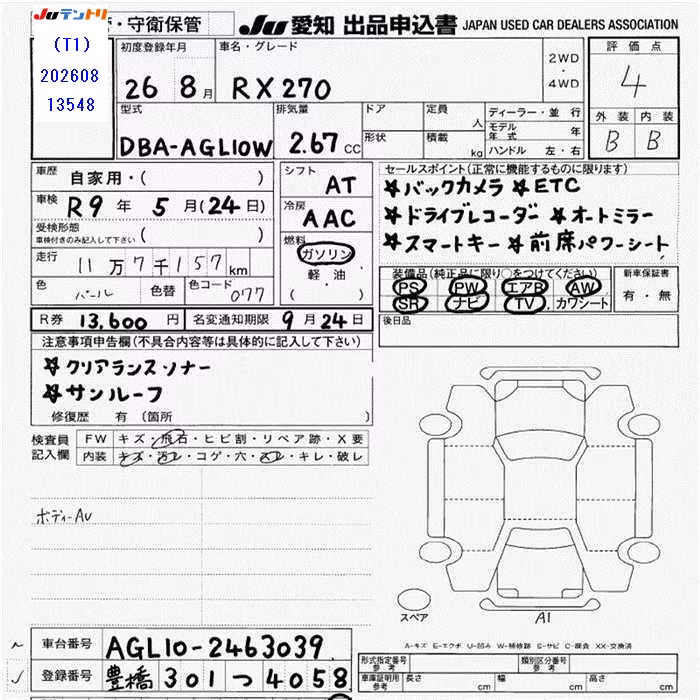 Juテントリ
・守衛保管
Ju 愛知 出品申込書 JAPAN USED CAR DEALERS ASSOCIATION
(T1)
202608
13548
初度登録年月 車名・グレード 評価点
26 8月 RX270 2WD・4WD 4
外装 内装
B B
型式 排気量 ドア 定員 人 ディーラー・並行
形状 積載 kg モデル年式 年
DBA-AGL10W 2.67 CC ハンドル 左・右
車歴 自家用・( ) シフト AT
セールスポイント(正常に機能するものに限ります)
☆バックカメラ ☆ETC
☆ドライブレコーダー ☆オートミラー
☆スマートキー ☆前席パワーシート
車検 R9年 5月(24日) 冷房 AAC
受検形態 ( )
車検付きのみ記入して下さい
燃料 ガソリン
軽・油
( )
走行 11万7千157km
色 パール 色替 色コード 077
装備品(純正品に限り○をつけてください) 新車保証書
PS PW エアB AW 有・無
SR ナビ TV カワシート
R券 13,600円 名変通知期限 9月24日
後日品
注意事項申告欄(不具合内容等は具体的に記入して下さい)
☆クリアランスソナー
☆サンルーフ
修復歴 有 (箇所 )
検査員記入欄 FW キズ・飛石・ヒビ割・リペア跡・X要
内装 キズ・汚レ・コゲ・穴・スレ・キレ・破レ
ボディーAU
スペア
A1
A-キズ E-エクボ U-凹み W-補修跡 S-サビ C-腐食 XX-交換済
車台番号 AGL10-2463039
登録番号 豊橋 301 つ 4058
形式指定番号 参考 類別区分番号 参考
車庫証明用 参考 長さ cm 幅 cm 高さ cm